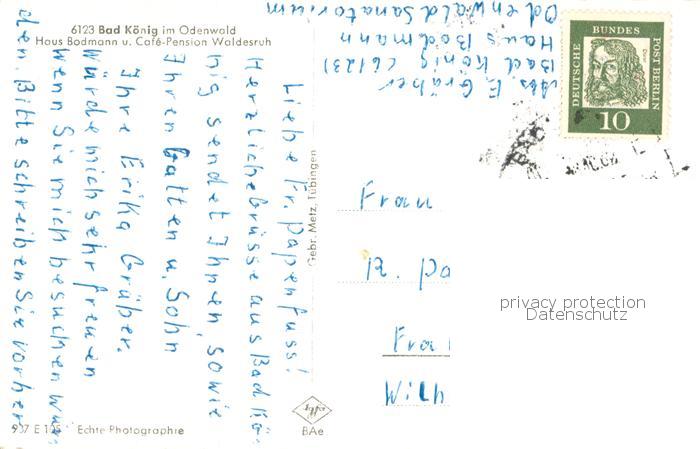 6123 Bad König im Odenwald
Haus Bodmann u. Café-Pension Waldesruh
Abs. E. Gräber
Bad König (6123)
Haus Bodmann
Odenwaldsanatorium
DEUTSCHE BUNDES POST BERLIN
10
Liebe Fr. Papenfuss!
Herzliche Grüsse aus Bad Kö-
nig sendet Ihnen, sowie
Ihren Gatten u. Sohn
Ihre Erika Gräber.
Würde mich sehr freuen
wenn Sie mich besuchen wür-
den. Bitte schreiben Sie vorher
Gebr. Metz, Tübingen
Frau
R. Pa
Fra
Wilh
privacy protection
Datenschutz
Echte Photographie
BAe